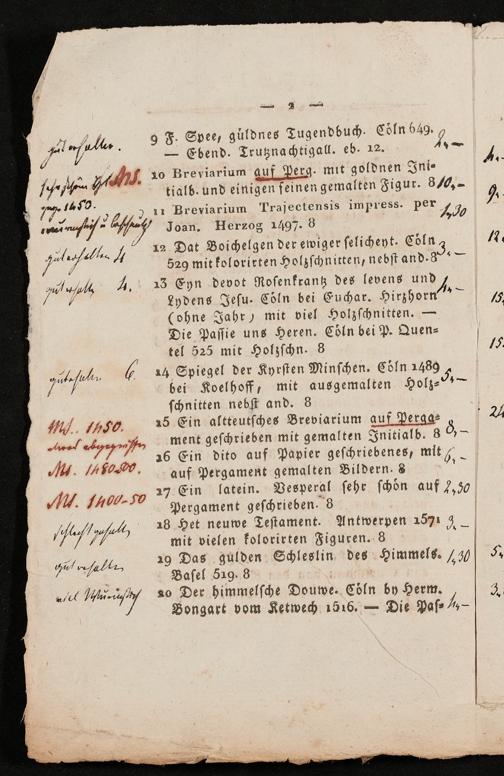 — 2 —
gut erhalten.
9 F. Spee, güldnes Tugendbuch. Cöln 649.
— Ebend. Trutznachtigall. eb. 12.
2,—
Ms.
10 Breviarium auf Perg. mit goldnen Ini-
tialb. und einigen feinen gemalten Figur. 8
10,—
1450.
11 Breviarium Trajectensis impress. per
Joan. Herzog 1497. 8
1,30
gut erhalten 4
12 Dat Boichelgen der ewiger selicheyt. Cöln
529 mit kolorirten Holzschnitten, nebst and. 8
3,—
gut erhalten 4.
13 Eyn devot Rosenkrantz des levens und
Lydens Jesu. Cöln bei Euchar. Hirzhorn
(ohne Jahr) mit viel Holzschnitten. —
Die Passie uns Heren. Cöln bei P. Quen-
tel 525 mit Holzschn. 8
4,—
gut erhalten 6.
14 Spiegel der Kyrsten Minschen. Cöln 1489
bei Koelhoff, mit ausgemalten Holz-
schnitten nebst and. 8
5,—
Ms. 1450.
15 Ein altteutsches Breviarium auf Perga-
ment geschrieben mit gemalten Initialb. 8
8,—
Ms. 1480-500.
16 Ein dito auf Papier geschriebenes, mit
auf Pergament gemalten Bildern. 8
6,—
Ms. 1400-50
17 Ein latein. Vesperal sehr schön auf
Pergament geschrieben. 8
2,30
schlecht gehalten
18 Het neuwe Testament. Antwerpen 1571
mit vielen kolorirten Figuren. 8
3,—
gut erhalten
19 Das gulden Schleslin des Himmels.
Basel 519. 8
1,30
20 Der himmelsche Douwe. Cöln by Herm.
Bongart vom Ketwech 1516. — Die Pas-
4,—